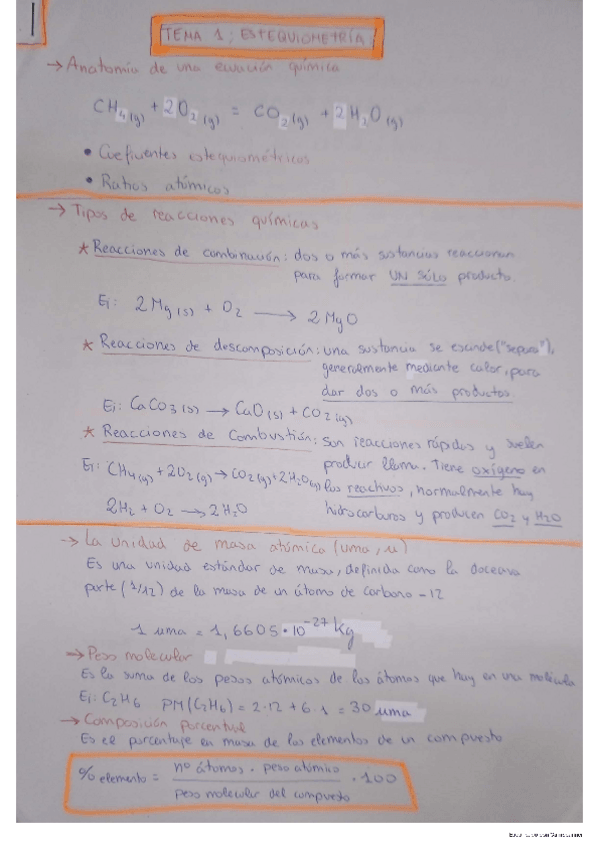 TEMA 1; ESTEQUIOMETRÍA
→ Anatomía de una ecuación química
CH₄(g) + 2O₂(g) = CO₂(g) + 2H₂O(g)
• Coeficientes estequiométricos
• Ratios atómicos
→ Tipos de reacciones químicas
* Reacciones de combinación: dos o más sustancias reaccionan
para formar UN SÓLO producto.
Ej: 2Mg(s) + O₂ → 2MgO
* Reacciones de descomposición: una sustancia se escinde ("separa"),
generalmente mediante calor, para
dar dos o más productos.
Ej: CaCO₃(s) → CaO(s) + CO₂(g)
* Reacciones de Combustión: son reacciones rápidas y suelen
producir llama. Tiene oxígeno en
Ej: CH₄(g) + 2O₂(g) → CO₂(g) + 2H₂O(g) los reactivos, normalmente hay
2H₂ + O₂ → 2H₂O hidrocarburos y producen CO₂ y H₂O
→ La unidad de masa atómica (uma, u)
Es una unidad estándar de masa, definida como la doceava
parte (1/12) de la masa de un átomo de carbono-12
1 uma = 1,6605·10⁻²⁷ kg
→ Peso molecular
Es la suma de los pesos atómicos de los átomos que hay en una molécula
Ej: C₂H₆ PM(C₂H₆) = 2·12 + 6·1 = 30 uma
→ Composición porcentual
Es el porcentaje en masa de los elementos de un compuesto
% elemento = nº átomos · peso atómico / peso molecular del compuesto · 100